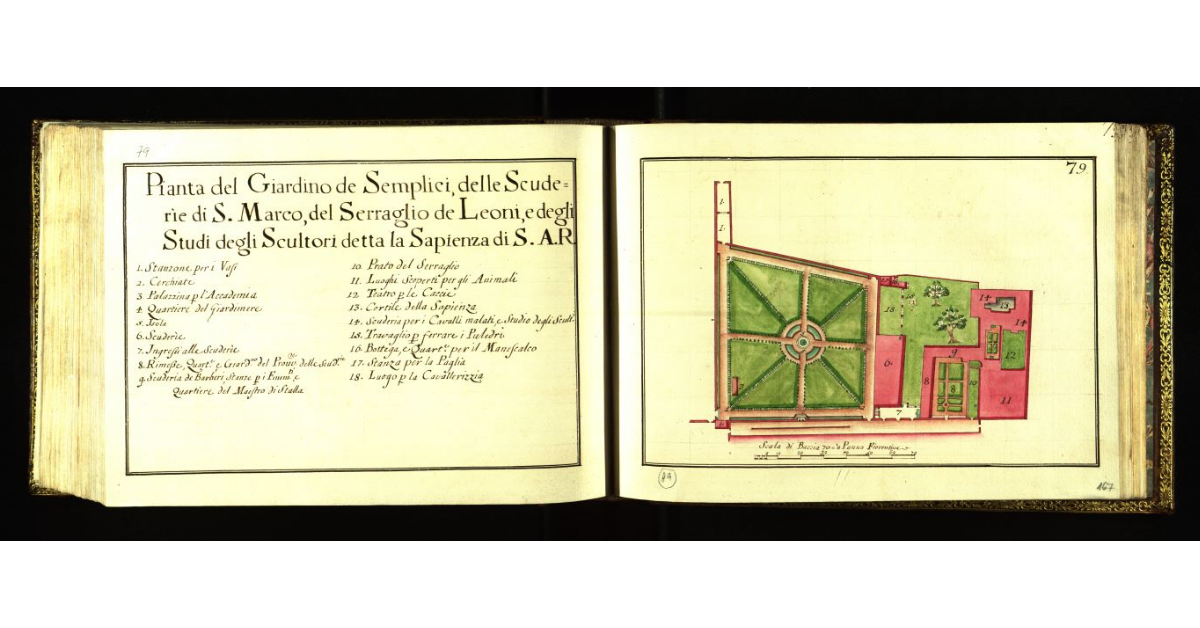 79
Pianta del Giardino de Semplici, delle Scude=
rìe di S. Marco, del Serraglio de Leoni, e degli
Studi degli Scultori detta la Sapienza di S. A.R.
1. Stanzone per i Vasi
2. Cerchiate
3. Palazzina p l'Accademia
4. Quartiere del Giardiniere
5.
6. Scuderìe
7. Ingressi alle Scuderìe
8. Rimesse, Quart. e Giard. del Prov. delle Scud.
9. Scuderia de Barberi, Stanze p i e
Quartiere del Maestro di Stalla
10. Prato del Serraglio
11. Luoghi Scoperti per gli Animali
12. Teatro p le Caccie
13. Cortile della Sapienza
14. Scuderia per i Cavalli malati, e Studio degli Scult.
15. Travaglio p ferrare i Puledri
16. Bottega, e Quart. per il Manescalco
17. Stanza per la Paglia
18. Luogo p la Cavallerizzia
79
1
1
18
6
7
8
8
9
10
11
12
13
14
14
Scala di Braccia 70 a Panno Fiorentine
79
167